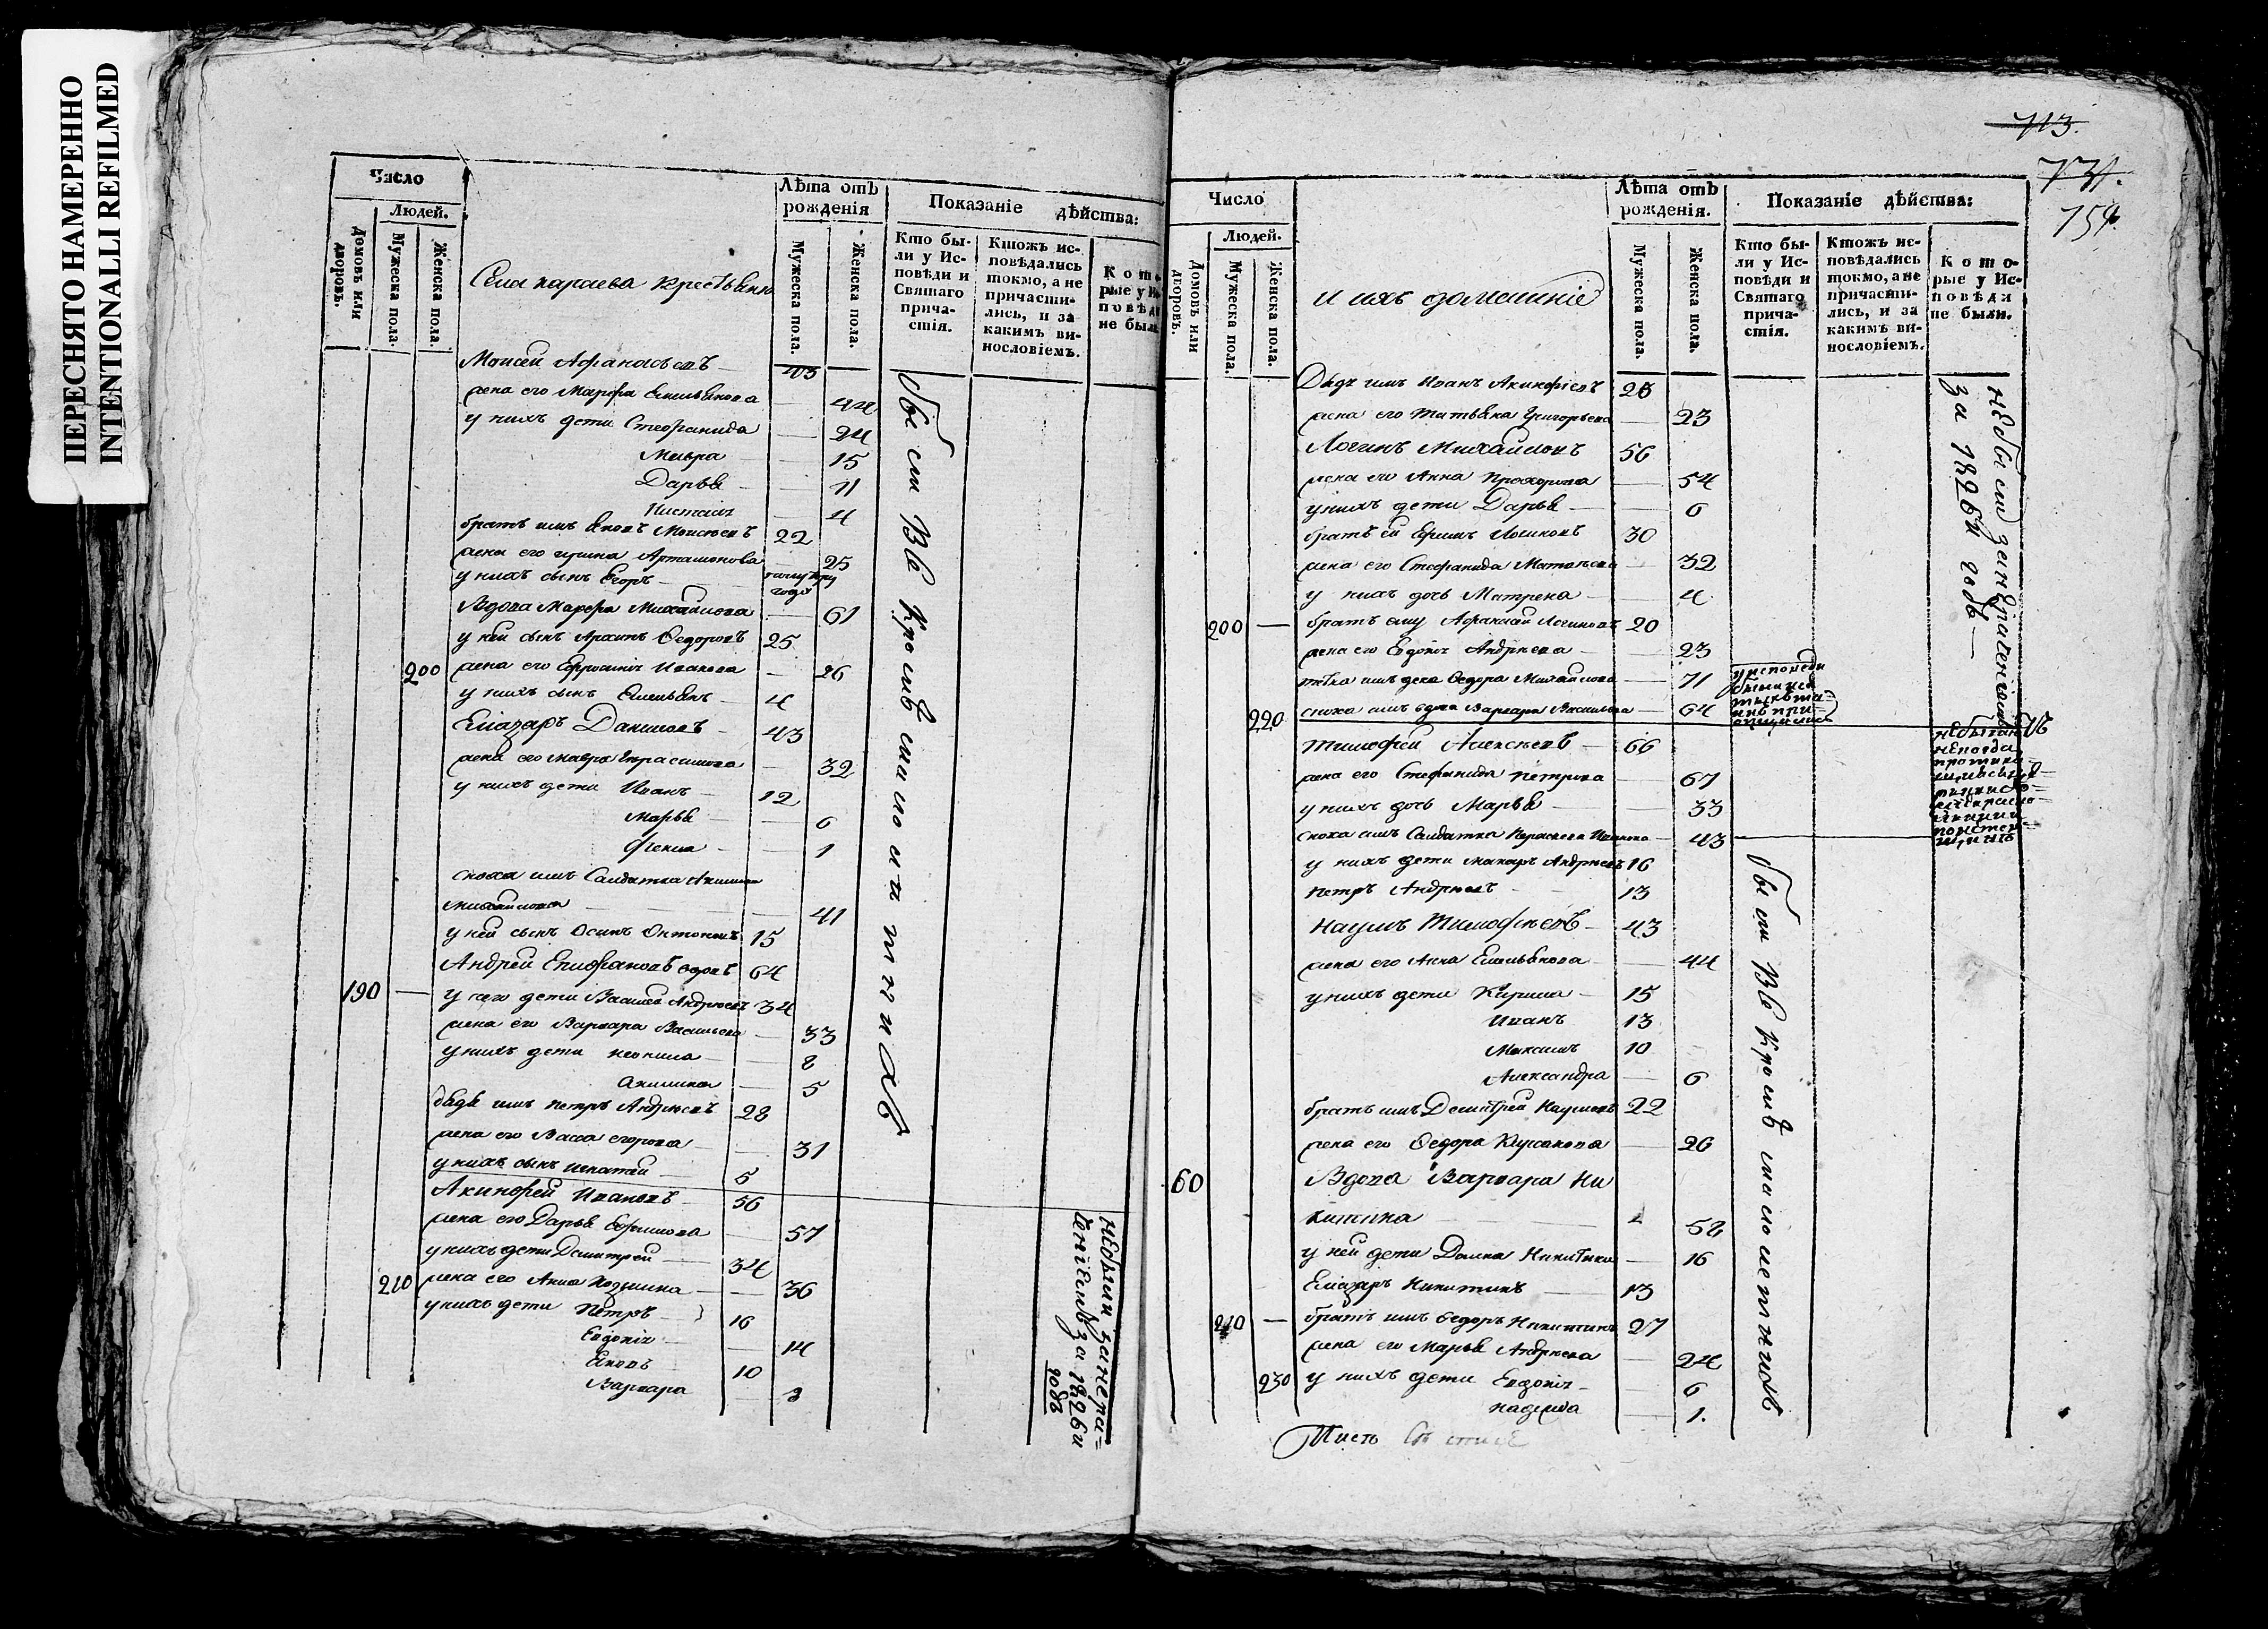 ПЕРЕСНЯТО НАМЕРЕННО
INTENTIONALLI REFILMED
Число
Людей.
Домовъ или дворовъ.
Мужеска пола.
Женска пола.
Села караева крестьяне
Лѣта отъ рожденія
Мужеска пола.
Женска пола.
Показаніе дѣйства:
Кто бы-
ли у Ис-
повѣди и
Святаго
прича-
стія.
Ктожъ ис-
повѣдались
токмо, а не
причасти-
лись, и за
какимъ ви-
нословіемъ.
Кото
рые у И
повѣд
не был
Моисей Афанасьевъ 43
жена его Марфа Емельянова 44
у нихъ дети Стефанида 24
Мавра 15
Дарья 11
4
братъ имъ Яковъ Моисеевъ 22
жена его Артамонова 25
у нихъ сынъ Егоръ полутора года
Вдова Марфа Михайлова 61
у ней сынъ Архипъ Федоровъ 25
200 жена его Ефросинія Иванова 26
у нихъ сынъ Емельянъ 4
Елазаръ Даниловъ 43
жена его Мавра Герасимова 32
у нихъ дети Иванъ 12
Марья 6
1
сноха имъ Салдатка Акилина
Михайлова 41
у ней сынъ Осипъ Антоновъ 15
Андрей Епифановъ вдовъ 64
190 — у него дети Василей Андреевъ 34
жена его Варвара Васильева 33
у нихъ дети неонила 8
Акилина 5
дядя имъ петръ Андреевъ 28
жена его Васса егорова 31
у нихъ сынъ игнатей 5
Акинфей Ивановъ 56
жена его Дарья Ефимова 57
у нихъ дети Демитрей 34
210 жена его Анна Козмина 36
у нихъ дети Петръ 16
Евдокія 14
Яковъ 10
Варвара 3
Были Все Кромѣ малолѣтнихъ
небыли занера-
деніемъ за 1826й
годъ
713.
731.
754.
Число
Людей.
Домовъ или дворовъ.
Мужеска пола.
Женска пола.
и ихъ домашніе
Лѣта отъ рожденія.
Мужеска пола.
Женска пола.
Показаніе дѣйства:
Кто бы-
ли у Ис-
повѣди и
Святаго
прича-
стія.
Ктожъ ис-
повѣдались
токмо, а не
причасти-
лись, и за
какимъ ви-
нословіемъ.
Кото-
рые у Ис-
повѣди
не были.
Дядя имъ Иванъ Акинфіевъ 26
жена его татьяна Григорьева 23
Логинъ Михайловъ 56
жена его Анна Прохорова 54
у нихъ дети Дарья 6
братъ ей Ефимъ Логиновъ 30
жена его Стефанида Матвѣева 32
у нихъ дочь Матрена 4
200 — братъ ему Афанасий Логиновъ 20
жена его Евдокія Андреева 23
тетка имъ дека Федора Михайлова 71
220 сноха имъ вдова Варвара Васильева 64
Тимофей Алексеевъ 66
жена его Стефанида петрова 67
у нихъ дочь Марья 33
сноха имъ Салдатка Ивановa 43
у нихъ дети макаръ Андреевъ 16
петръ Андреевъ 13
Наумъ Тимофеевъ 43
жена его Анна Емельянова 44
у нихъ дети Кирила 15
Иванъ 13
Максимъ 10
Александра 6
братъ имъ Демитрей Наумовъ 22
жена его Федора 26
60 Вдова Варвара Ни
китина 58
у ней дети Домна Никитина 16
Елазаръ Никитинъ 13
210 — братъ имъ Федоръ Никитинъ 27
жена его Марья Андреева 24
230 у нихъ дети Евдокія 6
надежда 1.
небыли занерадениемъ
за 1826й годъ —
у исповеди
Были Все Кромѣ малолетнихъ